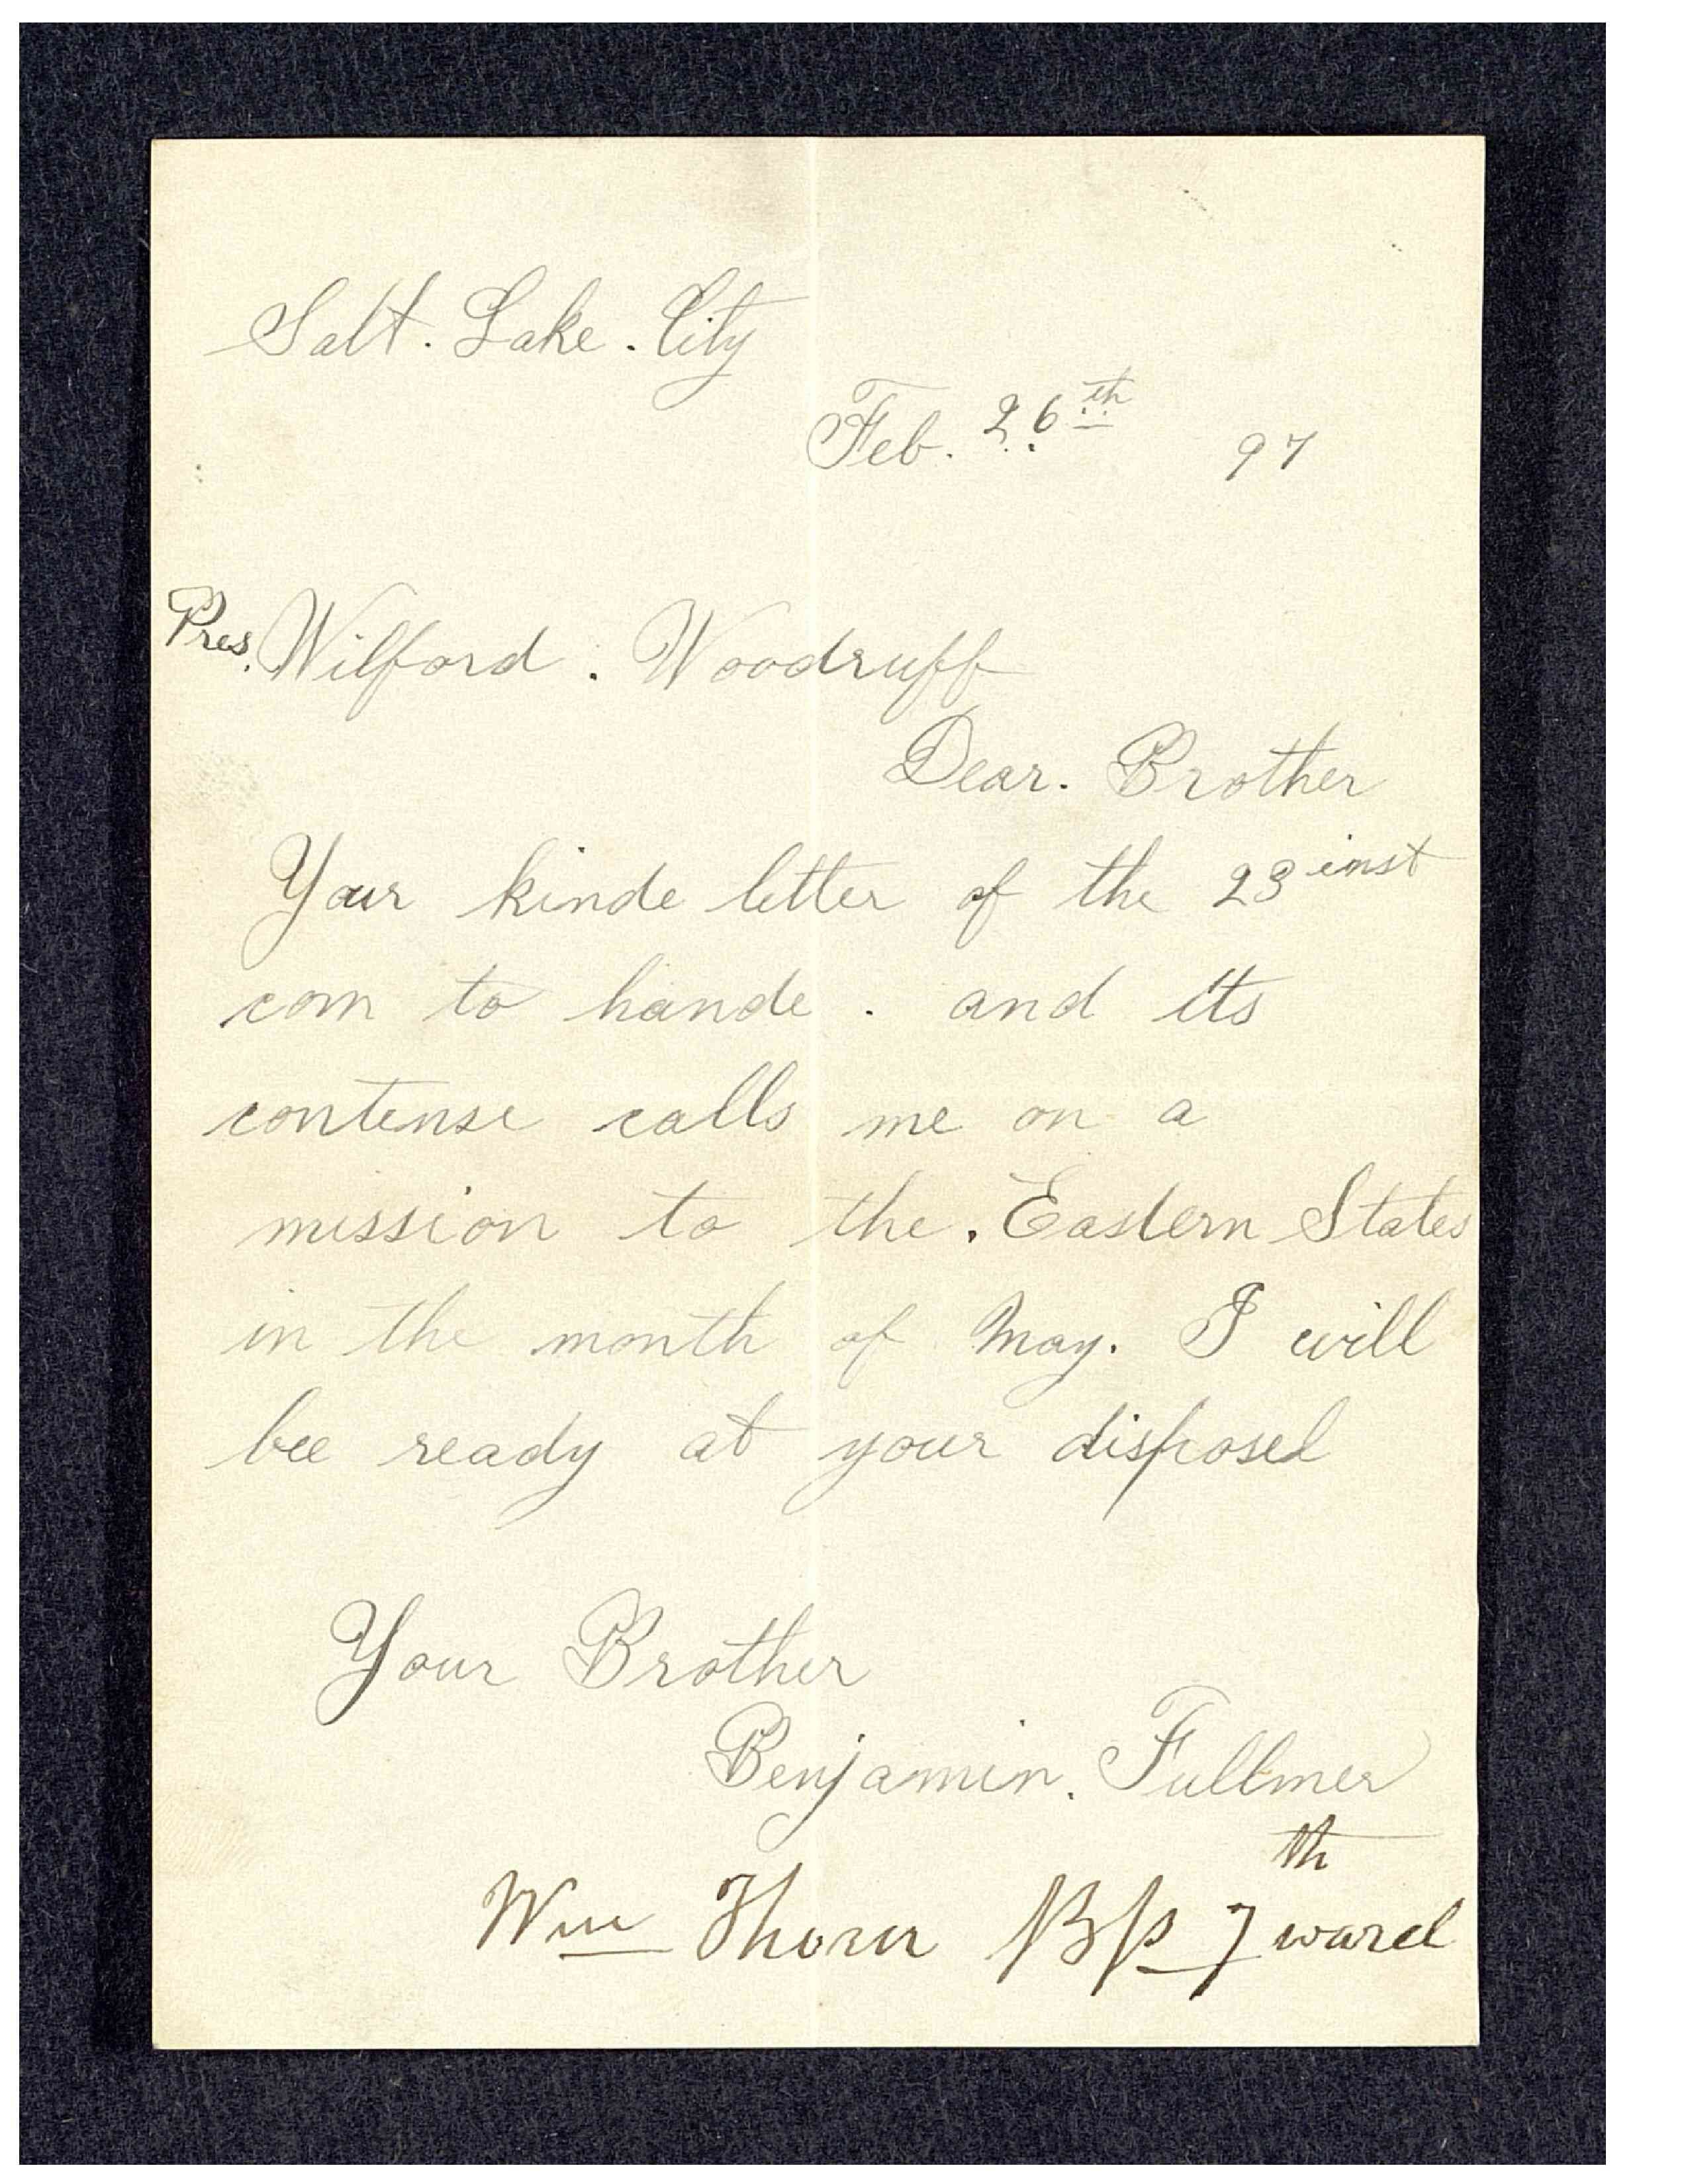 Salt. Lake. City
Feb. 26th 97
Pres. Wilford. Woodruff
Dear. Brother
Your kinde letter of the 23 inst
com to hande. and its
contense calls me on a
mission to the. Eastern States
in the month of May. I will
bee ready at your disposel
Your Brother
Benjamin. Fullmer
Wm Thorn Bp 7th ward